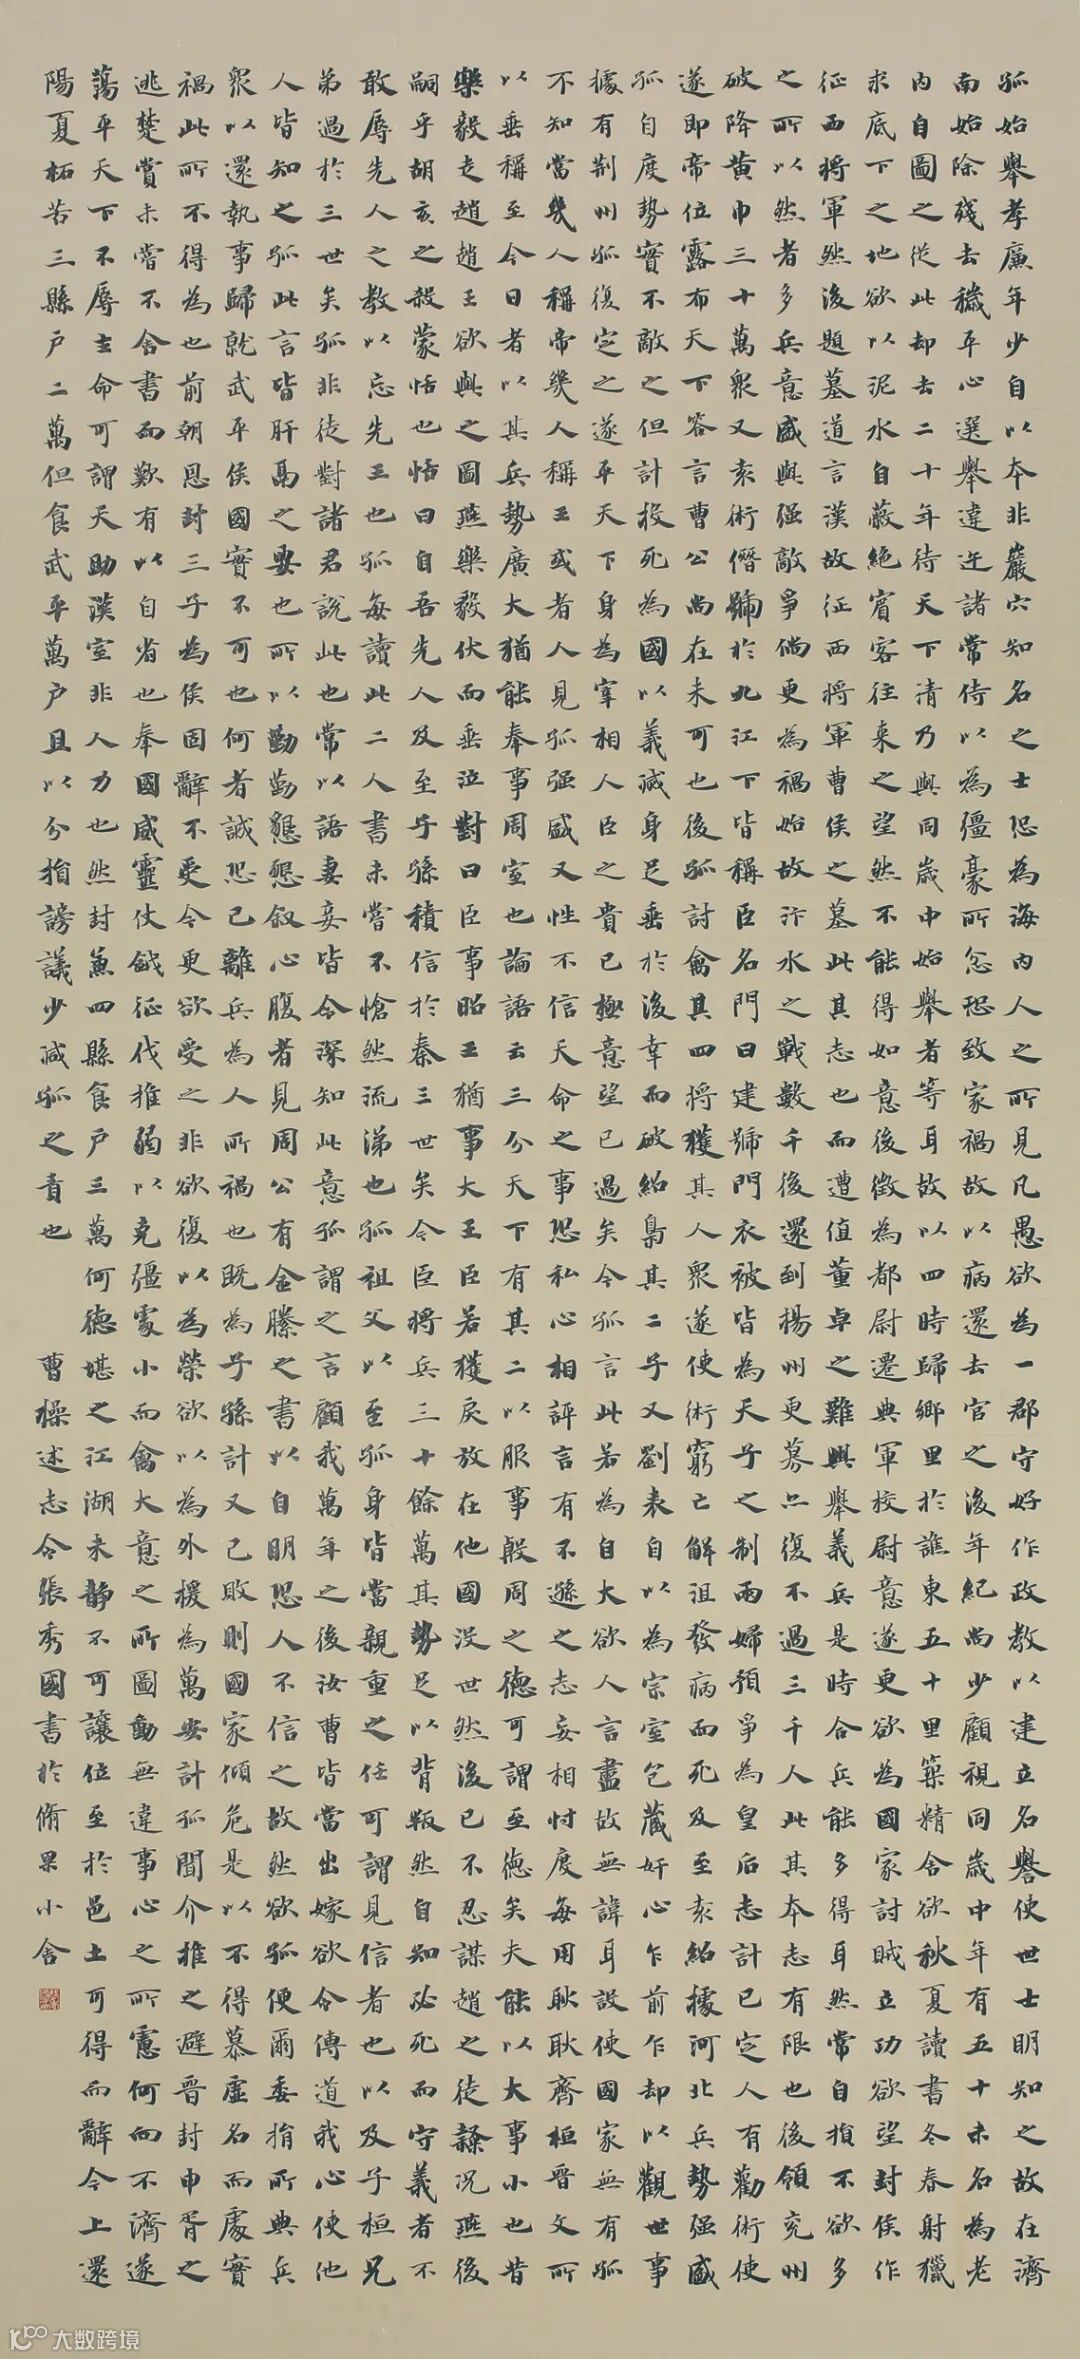 孤始舉孝廉年少自以本非巖穴知名之士恐為海內人之所見凡愚欲為一郡守好作政教以建立名譽使世士明知之故在濟
南始除殘去穢平心選舉違迕諸常侍以為彊豪所忿恐致家禍故以病還去官之後年紀尚少顧視同歲中年有五十未名為老
內自圖之從此却去二十年待天下清乃與同歲中始舉者等耳故以四時歸鄉里於譙東五十里築精舍欲秋夏讀書冬春射獵
求底下之地欲以泥水自蔽絕賓客往來之望然不能得如意後徵為都尉遷典軍校尉意遂更欲為國家討賊立功欲望封侯作
征西將軍然後題墓道言漢故征西將軍曹侯之墓此其志也而遭值董卓之難興舉義兵是時合兵能多得耳然常自損不欲多
之所以然者多兵意盛與强敵爭倘更為禍始故汴水之戰數千後還到楊州更募亦復不過三千人此其本志有限也後領兗州
破降黃巾三十萬眾又袁術僭號於九江下皆稱臣名門曰建號門衣被皆為天子之制兩婦預爭為皇后志計已定人有勸術使
遂即帝位露布天下答言曹公尚在未可也後孤討禽其四將獲其人眾遂使術窮亡解沮發病而死及至袁紹據河北兵勢强盛
孤自度勢實不敵之但計投死為國以義滅身足垂於後幸而破紹梟其二子又劉表自以為宗室包藏奸心乍前乍却以觀世事
據有荆州孤復定之遂平天下身為宰相人臣之貴已極意望已過矣今孤言此若為自大欲人言盡故無諱耳設使國家無有孤
不知當幾人稱帝幾人稱王或者人見孤强盛又性不信天命之事恐私心相評言有不遜之志妄相忖度每用耿耿齊桓晉文所
以垂稱至今日者以其兵勢廣大猶能奉事周室也論語云三分天下有其二以服事殷周之德可謂至德矣夫能以大事小也昔
樂毅走趙趙王欲與之圖燕樂毅伏而垂泣對曰臣事昭王猶事大王臣若獲戾放在他國沒世然後已不忍謀趙之徒隸況燕後
嗣乎胡亥之殺蒙恬也恬曰自吾先人及至子孫積信於秦三世矣今臣將兵三十餘萬其勢足以背叛然自知必死而守義者不
敢辱先人之教以忘先王也孤每讀此二人書未嘗不愴然流涕也孤祖父以至孤身皆當親重之任可謂見信者也以及子桓兄
弟過於三世矣孤非徒對諸君說此也常以語妻妾皆令深知此意孤謂之言顧我萬年之後汝曹皆當出嫁欲令傳道我心使他
人皆知之孤此言皆肝鬲之要也所以勤勤懇懇叙心腹者見周公有金縢之書以自明恐人不信之故然欲孤便爾委捐所典兵
眾以還執事歸就武平侯國實不可也何者誠恐己離兵為人所禍也既為子孫計又己敗則國家傾危是以不得慕虛名而處實
禍此所不得為也前朝恩封三子為侯固辭不受今更欲受之非欲復以為榮欲以為外援為萬安計孤聞介推之避晉封申胥之
逃楚賞未嘗不舍書而歎有以自省也奉國威靈仗鉞征伐推弱以克彊處小而禽大意之所圖動無違事心之所慮何向不濟遂
蕩平天下不辱主命可謂天助漢室非人力也然封兼四縣食戶三萬何德堪之江湖未靜不可讓位至於邑土可得而辭今上還
陽夏柘苦三縣戶二萬但食武平萬戶且以分損謗議少減孤之責也
曹操述志令張秀國書於脩果小舍
大数跨境